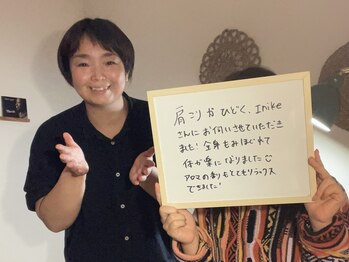 肩こりがひどく、Irike
さんにお伺いさせていただき
ました！全身もみほぐれて
体が楽になりました
アロマの香りもとてもリラックス
できました！